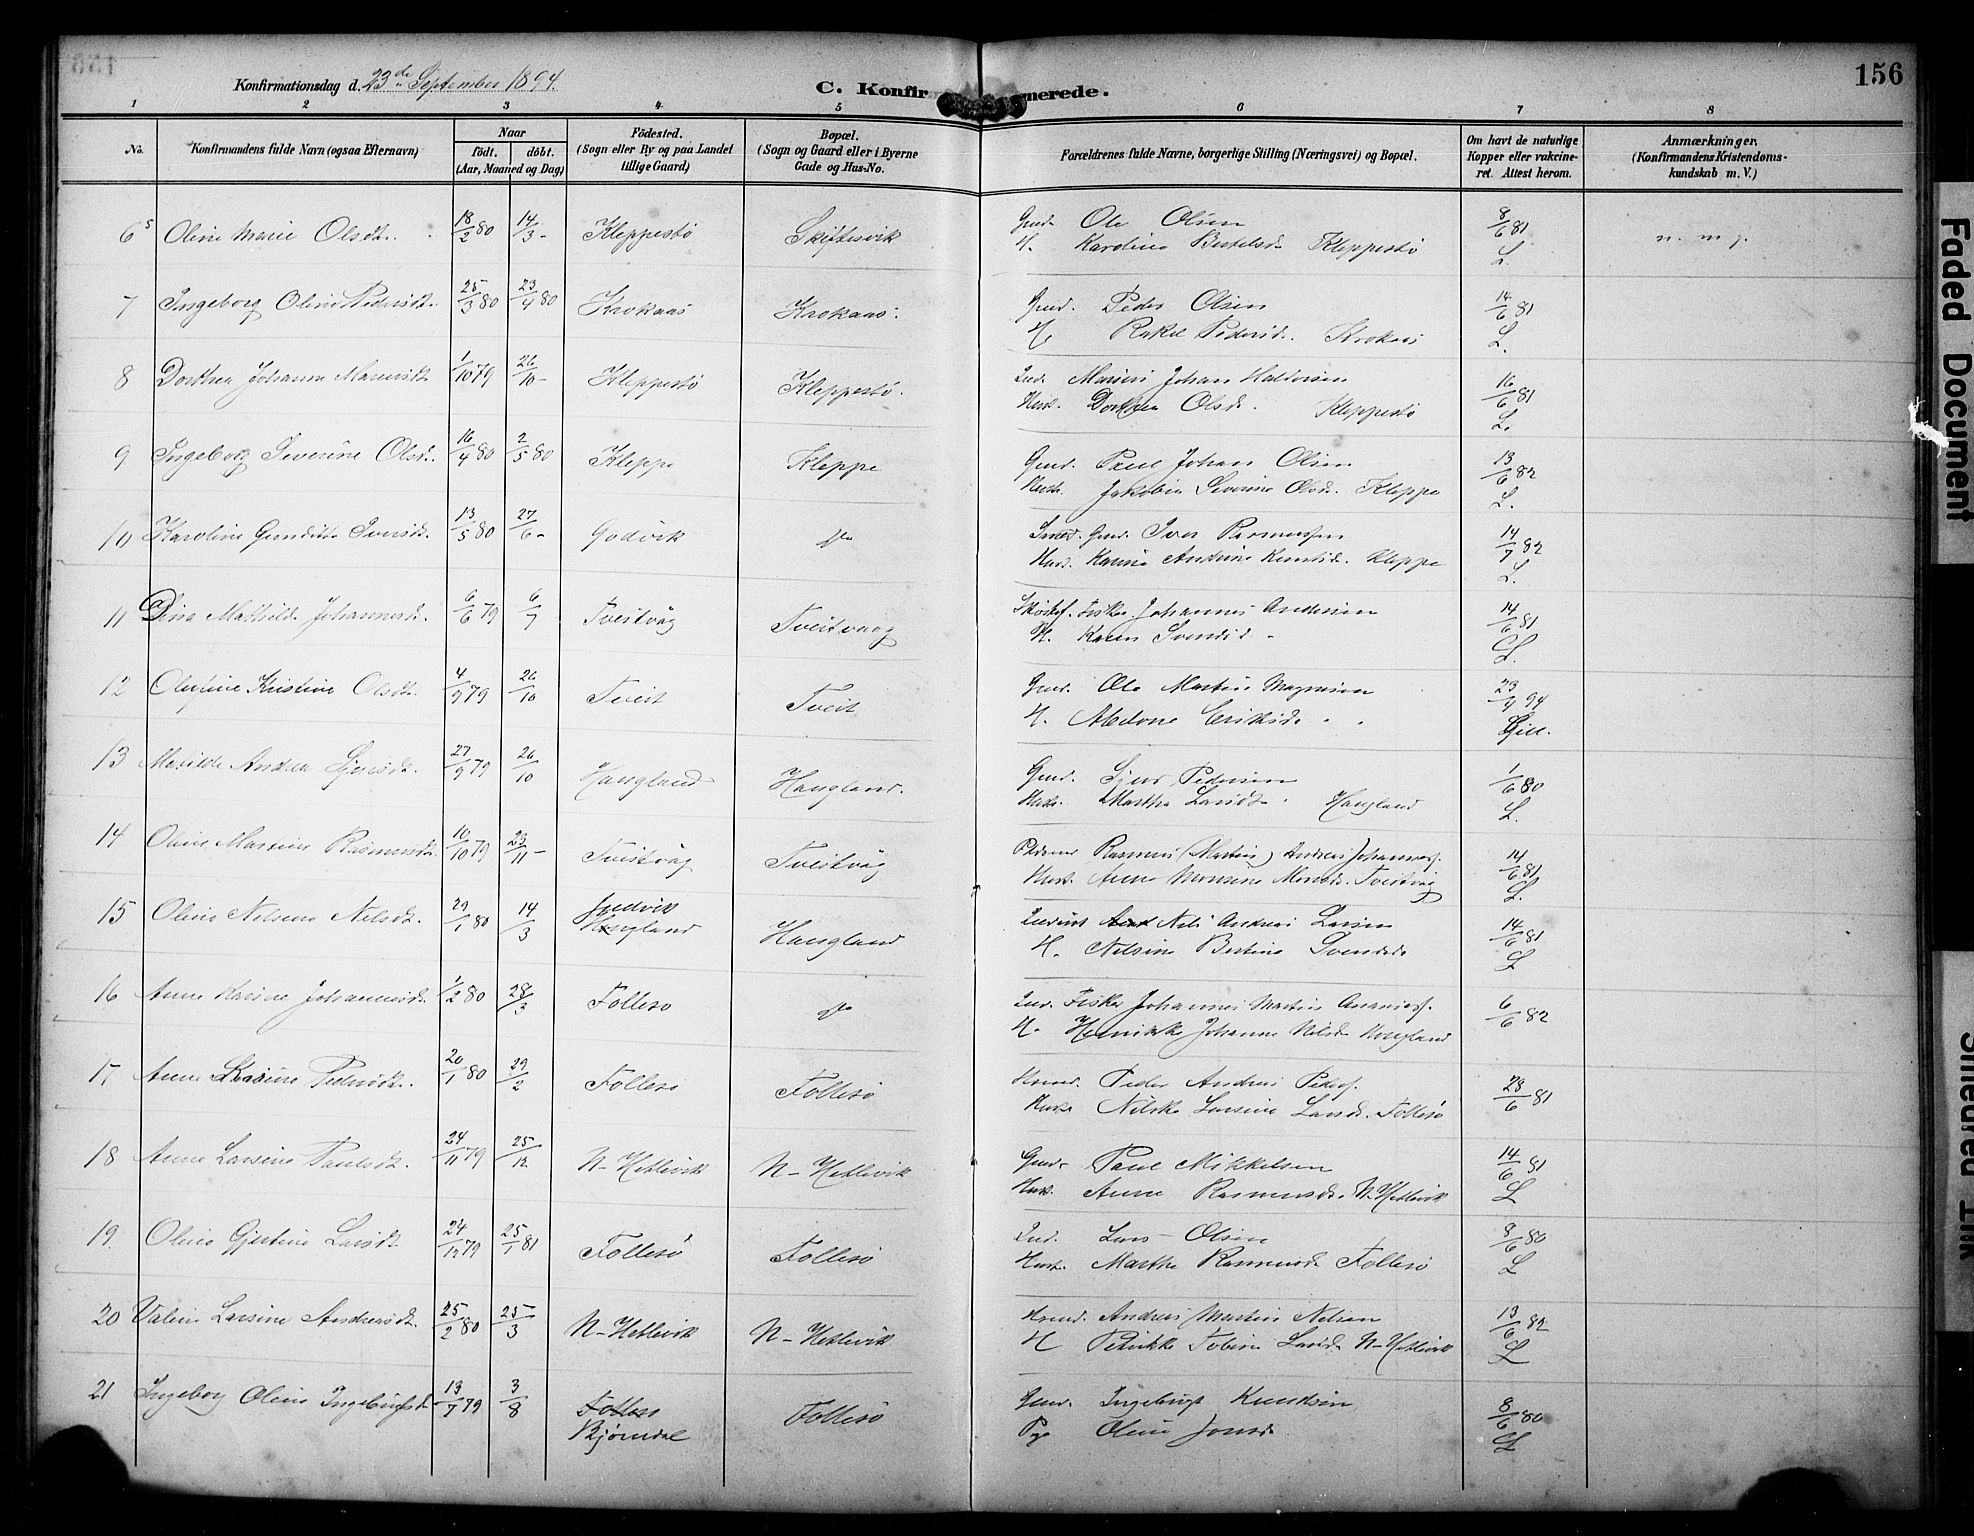 156
Konfirmationsdag d. 23de September 1894.
C. Konfirmerede.
1 2 3 4 5 6 7 8
No. Konfirmandens fulde Navn (ogsaa Efternavn) Naar födt. döbt. (Aar, Maaned og Dag) Födested. (Sogn eller By og paa Landet tillige Gaard) Bopæl. (Sogn og Gaard eller i Byerne Gade og Hus-No. Forældrenes fulde Navne, borgerlige Stilling (Næringsvei) og Bopæl. Om havt de naturlige Kopper eller vakcineret. Attest herom. Anmærkninger. (Konfirmandens Kristendomskundskab m. V.)
6 Oline Marie Olsdt. 18/2 80 14/3 - Kleppestö Skiftesvik Gmd. Ole Olsen 8/6 81
H. Karoline Bertelsd. Kleppestö L.
7 Ingeborg Oline Pedersdt. 25/3 80 23/4 80 Krokaas Krokaas. Gmd. Peder Olsen 14/6 81
H. Rakel Pedersd. Krokaas L.
8 Dorthea Johanne Mariusdt 1/10 79 26/10 - Kleppestö Kleppestö. Ind. Marius Johan Halvorsen 16/6 81
Hust. Dorthea Olsd. Kleppestö L.
9 Ingeborg Severine Olsd. 16/4 80 2/5 80 Kleppe Kleppe Gmd. Paul Johan Olsen 13/6 82
Hustr. Jakobine Severine Olsd. Kleppe L.
10 Karoline Iversdt. 13/5 80 27/6 - Godvik do Smed. Gmd. Iver Rasmussen 14/7 82
Hust. Karine Andrine Knutsd. Kleppe L.
11 Dina Mathilde Johannesd. 6/6 79 6/7 Tveitvåg Tveitvaag Fisker Johannes Andersen 14/6 81
H. Karen Svendsd. L.
12 Olufine Kristine Olsdt. 4/9 79 26/10 Tveit Tveit Gmd. Ole Martin Magnesen 23/9 94
H. Abelone Eriksd.
13 Matilde Andrea Sjursdt. 27/9 79 26/10 Haugland Haugland. Gmd. Sjur Pedersen 1/6 80
Hust. Martha Larsdt. Haugland L.
14 Oline Martine Rasmusdt. 10/10 79 23/11 - Tveitvåg Tveitvåg Rasmus (Martin) Andreas Johannesf. 14/6 81
Hust. Anne Monsine Monsd. Tveitvåg L.
15 Oline Nelsine Nilsdt. 29/1 80 14/3 Haugland Haugland Nils Andreas Larsen 14/6 81
H. Nilsine Bertine Svendsd. L
16 Anne Karine Johannesd. 1/2 80 28/3 Follesø do Ind. Fisker Johannes Martin Ananiasf. 6/6 82
H. Henrikke Johanne Nilsd. Haugland
17 Anne Pedersdt. 20/1 80 29/2 Follesö Follesö Peder Andreas Pedersf. 28/6 81
Hust. Nilske Larsine Larsd. Follesö
18 Anne Larsine Paulsdt. 24/11 79 25/12 N-Hetlevik N-Hetlevik Gmd. Paul Mikkelsen 14/6 81
Hust. Anne Rasmusd. N-Hetlevik L
19. Oline Gjertine Larsdt 24/12 79 25/1 81 Follesö Follesö Ind. Lars Olsen 8/6 80
Hust. Martha Rasmusd. Follesö L
20 Valine Larsine Andreasdt. 25/2 80 25/3 N-Hetlevik N-Hetlevik Andreas Martin Nilsen 13/6 82
H Petrikke Tobine Larsd. N-Hetlevik L
21 Ingeborg Oline Ingebrigtsd. 13/7 79 3/8 Follesø Follesö Gmd. Ingebrigt Knudsen 8/6 80
Bjørndal Oline Jonsd. L
Faded Document
Smeared Ink